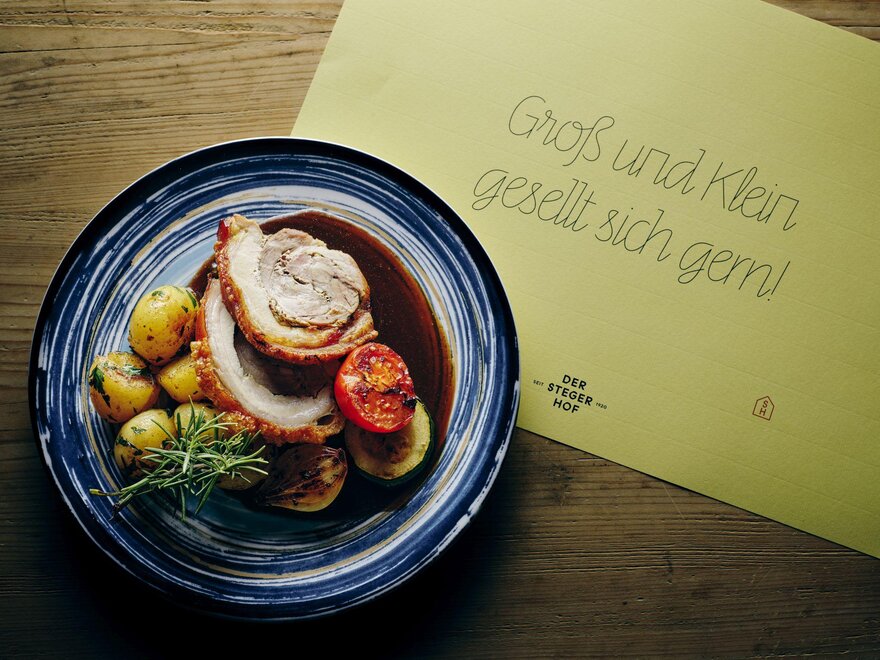 Groß und Klein
gesellt sich gern!
DER
SEIT STEGER 1920
HOF
SH